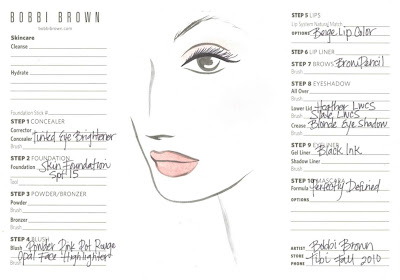 BOBBI BROWN
bobbibrown.com
Skincare
Cleanse
Hydrate
Foundation Stick #
STEP 1 CONCEALER
Corrector
Concealer Tinted Eye Brightener
Brush
STEP 2 FOUNDATION
Foundation Skin Foundation
SPF 15
Tool
STEP 3 POWDER/BRONZER
Powder
Brush
Bronzer
Brush
STEP 4 BLUSH
Blush Powder Pink Pot Rouge
Opal Face Highlighter
STEP 5 LIPS
Lip System Natural Match
OPTIONS Beige Lip Color
STEP 6 LIP LINER
STEP 7 BROWS Brow Pencil
Brush
STEP 8 EYESHADOW
All Over
Lower Lid Heather LWCS
Brush Slate LWCS
Crease Blonde Eye Shadow
Brush
STEP 9 EYELINER
Gel Liner Black Ink
Shadow Liner
Brush
STEP 10 MASCARA
Formula Perfectly Defined
OPTIONS
ARTIST Bobbi Brown
STORE Tibi Fall 2010
PHONE